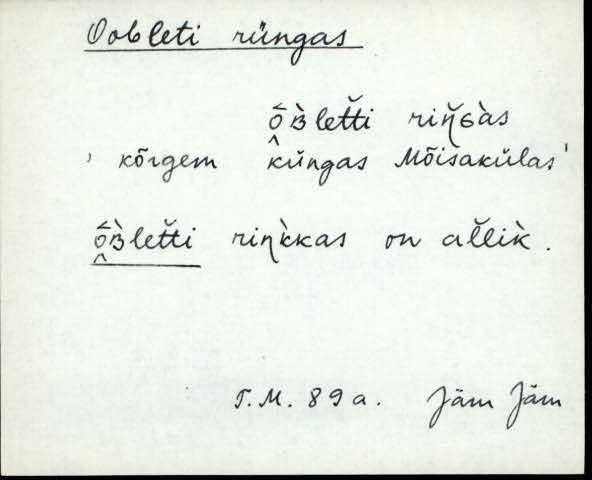 Oobleti rüngas
ŏ̭ʙ̀lett̆i riŋ̆ɢàs
' kõrgem küngas Mõisakülas'
ŏ̭ʙ̀lett̆i riŋk̀kas on all̆ik̀.
T.M. 89 a. Jäm Jäm